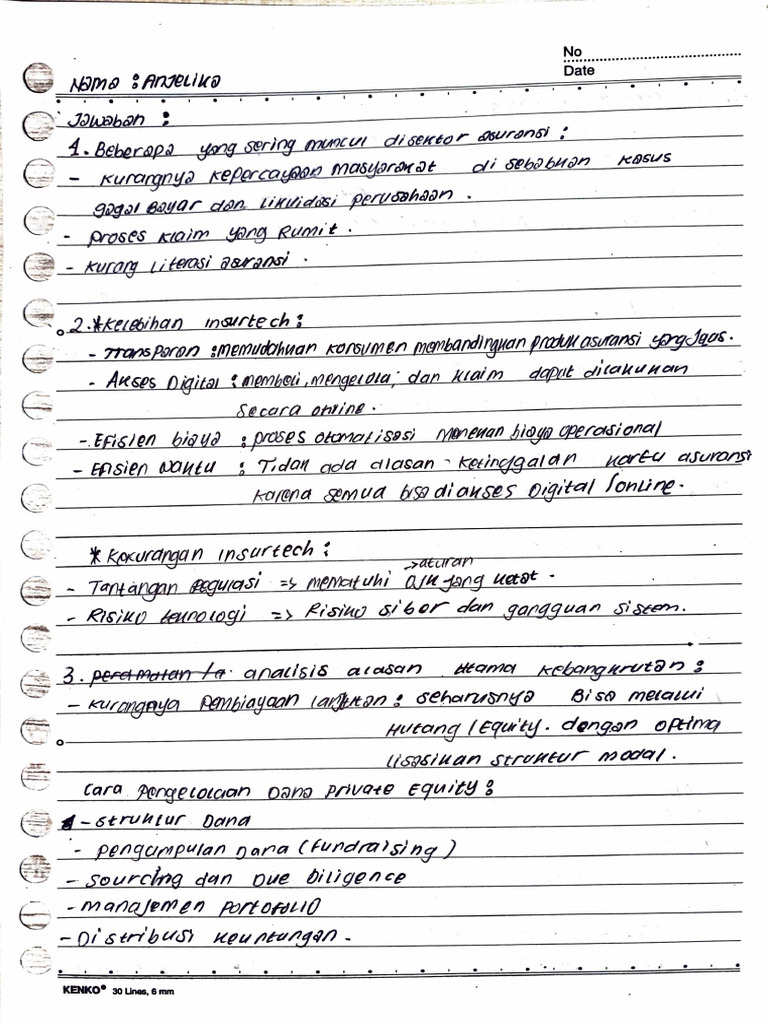 No
Date
Nama : Anjelika
Jawaban :
1. Beberapa yang sering muncul disektor asuransi :
- kurangnya kepercayaan masyarakat di sebabkan kasus
gagal bayar dan likuidasi perusahaan .
- proses klaim yang Rumit .
- kurang literasi asuransi .
2. *kelebihan insurtech :
- Transparan : memudahkan konsumen membandingkan produk asuransi yang Jelas .
- Akses Digital : membeli, mengelola, dan klaim dapat dilakukan
Secara online .
- Efisien biaya : proses otomatisasi menekan biaya operasional
- Efisien waktu : Tidak ada alasan ketinggalan kartu asuransi
karena semua bisa diakses Digital / online .
* kekurangan insurtech :
→ aturan
- Tantangan regulasi => mematuhi OJK yang ketat .
- Risiko teknologi => Risiko siber dan gangguan sistem .
3. analisis alasan utama kebangkrutan :
- kurangnya pembiayaan lanjutan : seharusnya Bisa melalui
Hutang / Equity . dengan optima
lisasikan struktur modal .
Cara pengelolaan Dana private Equity :
- struktur Dana
- pengumpulan Dana (fundraising)
- sourcing dan Due Diligence
- manajemen portofolio
- Distribusi keuntungan .
KENKO® 30 Lines, 6 mm